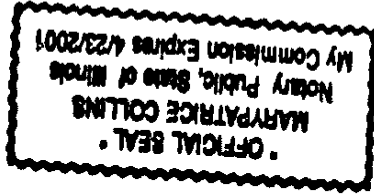 " OFFICIAL SEAL "
MARYPATRICE COLLINS
Notary Public, State of Illinois
My Commission Expires 4/23/2001